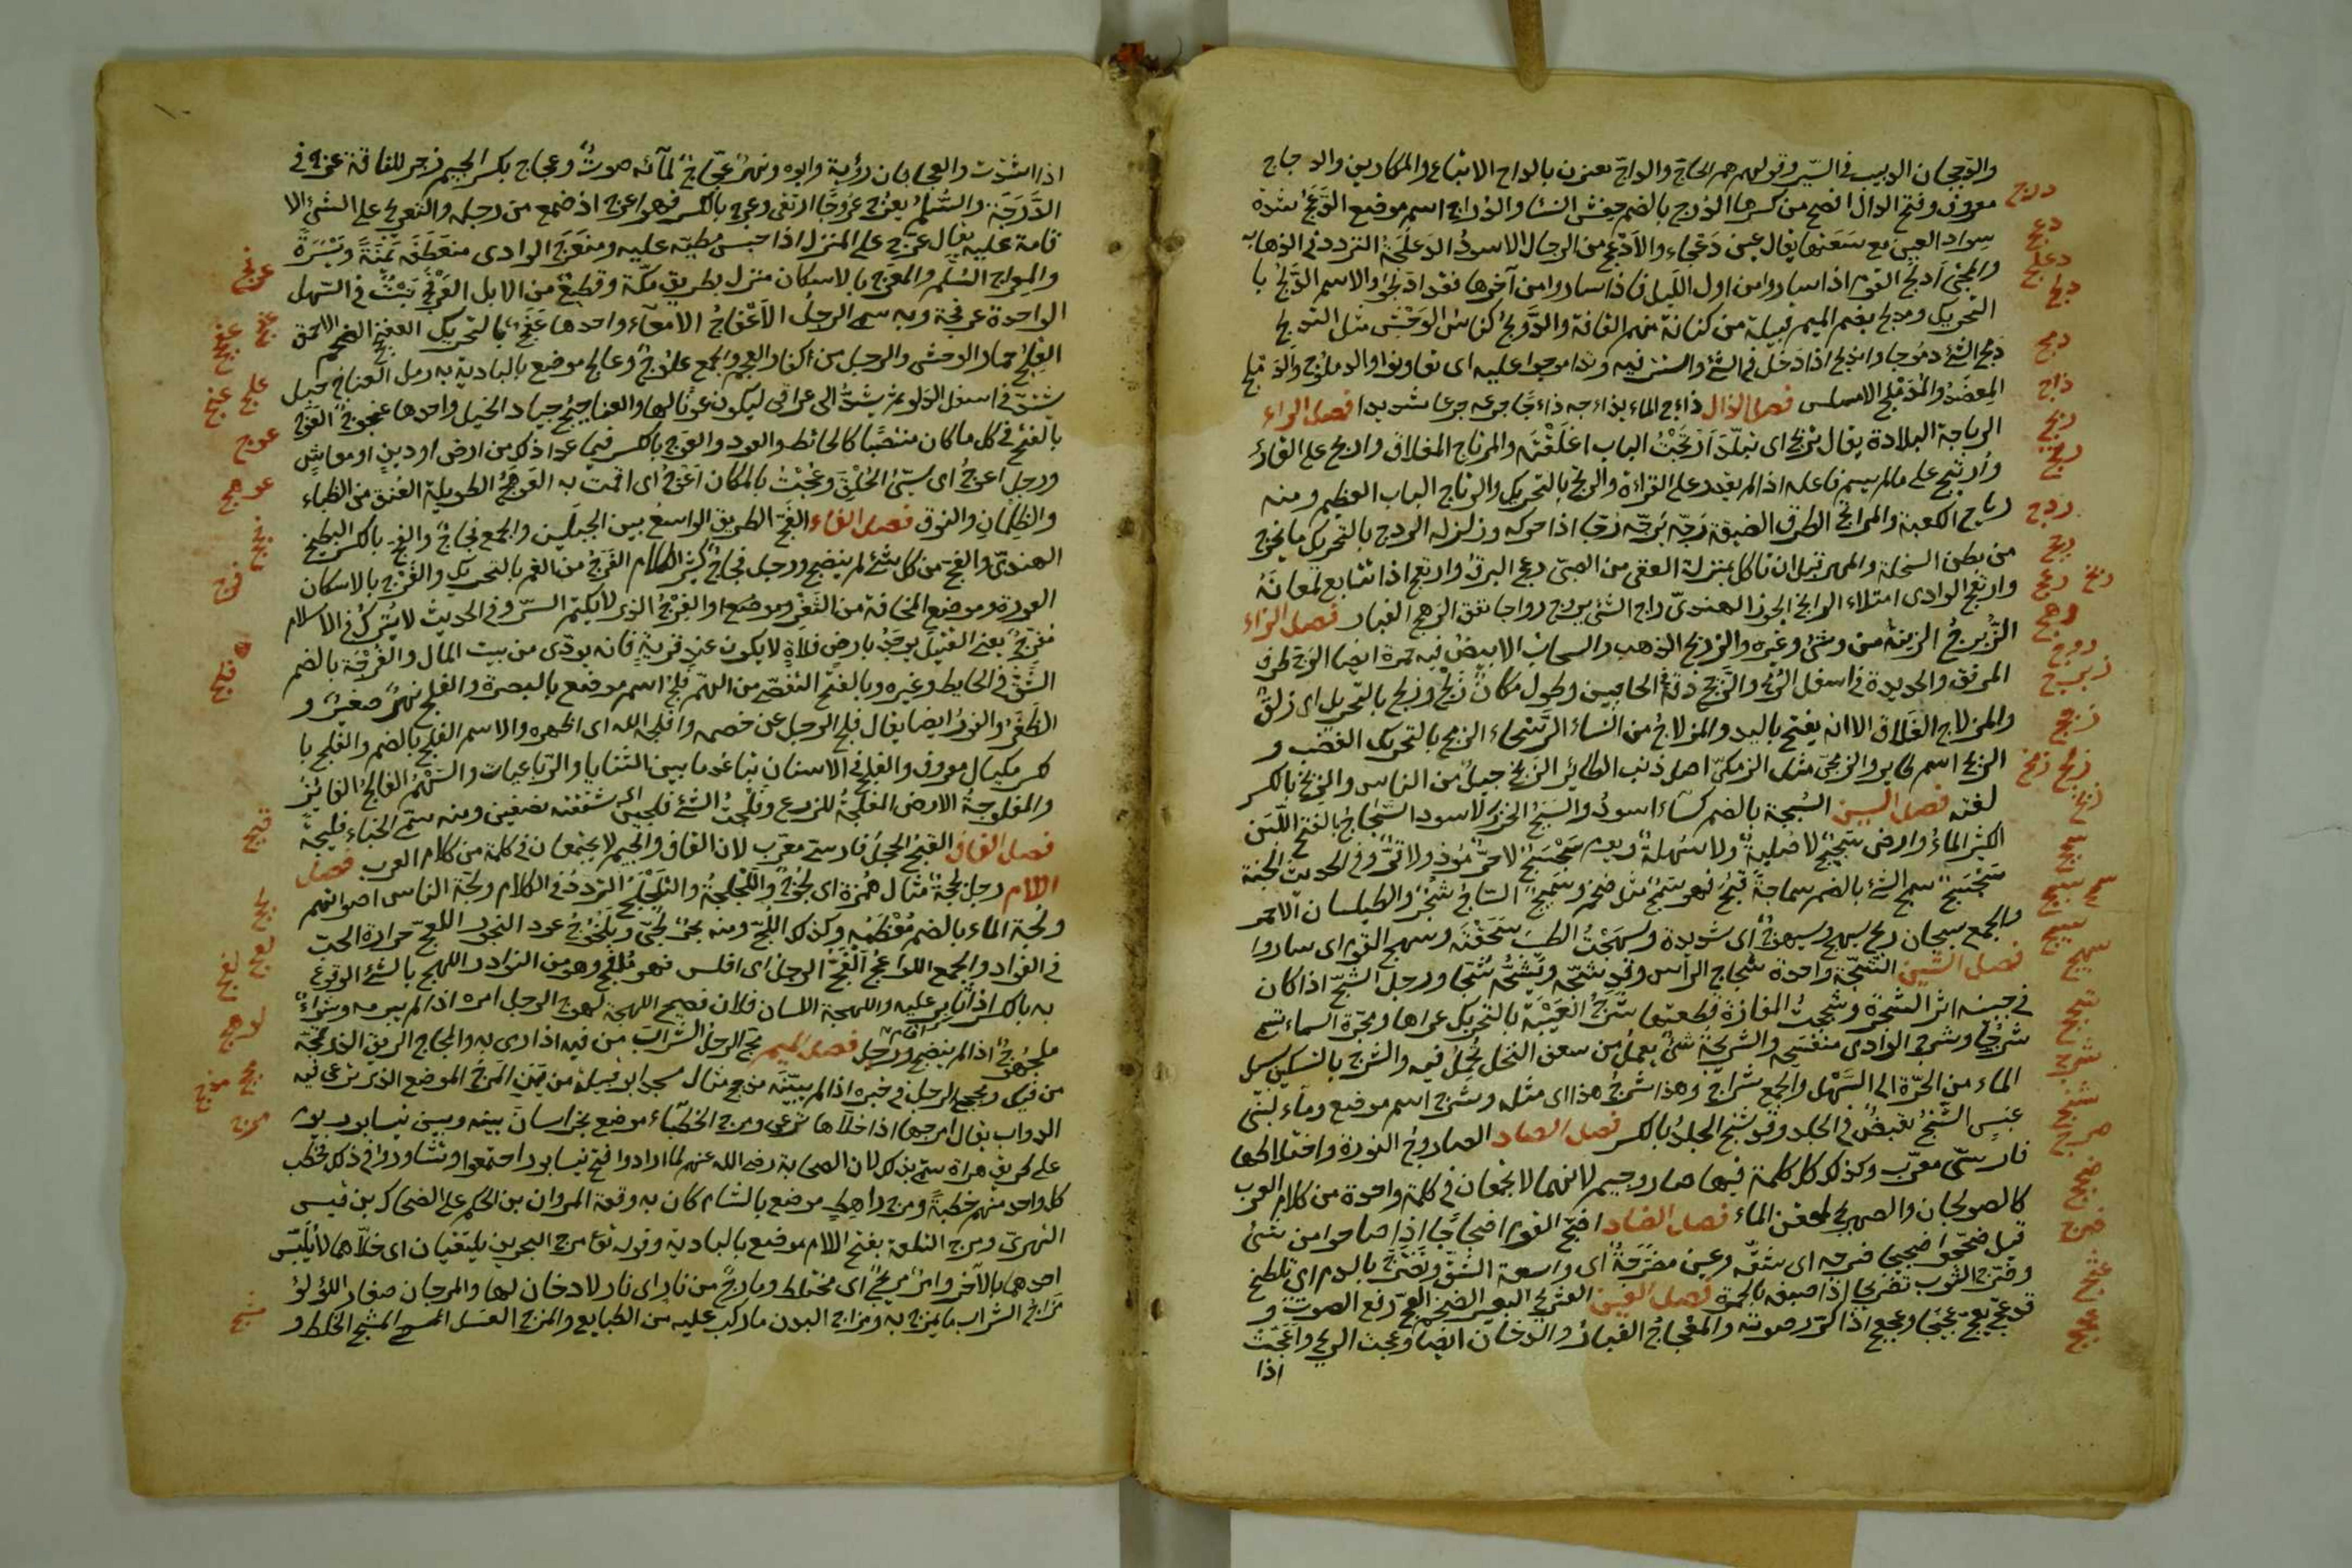 والدججان الدبيب في السير وقولهم هم الحاج والداج يعنون بالداج الاتباع والمكارين والدجاج
معروف وفتح الدال افصح من كسرها الدرج بالضم حفش النساء والدراج اسم موضع الدعج شدة
سواد العين مع سعتها يقال عين دعجاء والادعج من الرجال الاسود الدعلجة التردد في الذهاب
والمجئ ادلج القوم اذا ساروا من اول الليل فاذا ساروا من آخرها فقد ادلجوا والاسم الدلج با
التحريك ومدلج بضم الميم قبيلة من كنانة منهم القافة والدولج كناس الوحش مثل التولج
دمج الشئ دموجا واندمج اذا دخل في الشئ واستتر فيه وتدامجوا عليه اى تعاونوا والدملوج والدملج
المعضد والمدملج الاملس فصل الذال ذأج الماء يذأجه ذأجا جرعه جرعا شديدا فصل الراء
الرباجة البلادة يقال تربج اى تبلد ارتجت الباب اغلقته والمرتاج المغلاق وارتج على القارئ
وارتج على مالم يسم فاعله اذا لم يقدر على القراءة والرتج بالتحريك والرتاج الباب العظيم ومنه
رتاج الكعبة والمراتج الطرق الضيقة رجه يرجه رجا اذا حركه وزلزله الردج بالتحريك ما يخرج
من بطن السخلة والمهر قبل ان تأكل بمنزلة العقى من الصبى رعج البرق وارتعج اذا تتابع لمعانه
وارتعج الوادى امتلاء الرانج الجوز الهندى راج الشئ يروج رواجا نفق الرهج الغبار فصل الزاء
الزبرج الزينة من وشى وغيره والزبرج الذهب والسحاب الابيض فيه حمرة ايضا الزج طرف
المرفق والحديدة في اسفل الرمح والزجج دقة الحاجبين وطول مكان زلج وزلج بالتحريك اى زلق
والمزلاج المغلاق الا انه يفتح باليد والمزلاج من النساء الرسحاء الزمج بالتحريك الغضب و
الزمج اسم طاير والزمجى مثل الزمكى اصل ذنب الطائر الزنج جيل من الناس والزنج بالكسر
لغته فصل السين السبجة بالضم كساء اسود والسبج الخرز الاسود السجاج بالفتح اللبن
الكثير الماء وارض سجسج لا صلبة ولا سهلة ويوم سجسج لا حر مؤذ ولا قر وفى الحديث الجنة
سجسج سمج الشئ بالضم سماجة قبح فهو سمج مثل ضخم وسميج الساج شجر والطيلسان الاحمر
والجمع سيجان ريح سيهج وسيهوج اى شديدة وسهجت الطيب سحقته وسهج القوم اى ساروا
فصل الشين الشجة واحدة شجاج الراس وقد شجه ويشجه شجا ورجل اشج اذا كان
في جبينه اثر الشجة وشججت المفازة قطعتها شرج العيبة بالتحريك عراها ومجرة السماء تسمى
شرجا وشرج الوادى منفسحه والشريجة شئ يعمل من سعف النخل يحمل فيه والشرج بالتسكين مسيل
الماء من الحرة الى السهل والجمع شراج وهذا شرج هذا اى مثله وشرج اسم موضع وماء لبنى
عبس الشنج تقبض في الجلد وقد شنج الجلد بالكسر فصل الصاد الصاروج النورة واخلاطها
فارسى معرب وكذلك كل كلمة فيها صاد وجيم لانهما لا يجتمعان في كلمة واحدة من كلام العرب
كالصولجان والصهريج لحقن الماء فصل الضاد اضج القوم اضجاجا اذا صاحوا من شئ
قيل ضجوا ضجيجا ضرجه اى شقه وعين مضرجة اى واسعة الشق وتضرج بالدم اى تلطخ
وضرج الثوب تضريجا اذا صبغه بالحمرة فصل العين العثوثج البعير الضخم العج رفع الصوت و
قد عج يعج عجيجا وعجعج اذا كرر صوته والعجاج الغبار والدخان ايضا وعجت الريح واعجت
اذا
درج
دعج
دعلج
دلج
دمج
ذاج
ربج
رتج
ردج
رعج
رنج
رهج
روج
زبرج
زجج
زلج زمج
زنج
سبج
سجج
سمج
سيج
سهج
شجج
شرج
شنج
صرج
ضجج
ضرج
عثج
عجج
اذا اشتدت والعجاجان رؤبة وابوه ونهر عجاج لمائه صوت وعجاج بكسر الجيم زجر للناقة عرج في
الدرجة والسلم يعرج عروجا ارتقى وعرج بالكسر فهو اعرج اذ ضمع من رجله والتعريج على الشئ الا
قامة عليه يقال عرج على المنزل اذا حبس مطيته عليه ومنعرج الوادى منعطفه يمنة ويسرة
والمعراج السلم والعرج بالاسكان منزل بطريق مكة وقطيع من الابل العرفج نبت في السهل
الواحدة عرفجة وبه سمى الرجل الاعفاج الامعاء واحدها عفج بالتحريك العفنج الضخم الاحمق
العلج حمار الوحش والرجل من الكفار العجم والجمع علوج وعالج موضع بالبادية به رمل العناج حبل
يشد في اسفل الدلو ثم يشد الى عراقى ليكون عونا لها والعناجيج جياد الخيل واحدها عنجوج العوج
بالفتح في كل ما كان منتصبا كالحائط والعود والعوج بالكسر فيما عدا ذلك من ارض او دين او معاش
ورجل اعوج اى سيئ الخلق وعجت بالمكان اعوج اى اقمت به العوهج الطويلة العنق من الظباء
والظلمان والنوق فصل الفاء الفج الطريق الواسع بين الجبلين والجمع فجاج والفج بالكسر البطيخ
الهندى والفج من كل شئ لم ينضج ورجل فجاج كثير الكلام الفرج من الغم بالتحريك والفرج بالاسكان
العورة وموضع المخافة من الثغر وموضع والفرج الذى لا يكتم السر وفى الحديث لا يترك في الاسلام
مفرج يعنى القتيل يوجد بارض فلاة لا يكون عند قرية فانه يودى من بيت المال والفرجة بالضم
الشق في الحايط وغيره وبالفتح التفصى من الهم فلج اسم موضع بالبصرة والفلج نهر صغير و
الظفر والفوز ايضا يقال فلج الرجل على خصمه وافلجه الله اى اظهره والاسم الفلج بالضم والفلج با
لكسر مكيال معروف والفلج في الاسنان تباعد ما بين الثنايا والرباعيات والسهم الفالج الفايز
والمفلوجة الارض المفلجة للزرع وفلجت الشئ فلجين اى شققته نصفين ومنه سمى الخباء فليجة
فصل القاف القبج الحجل فارسى معرب لان القاف والجيم لا يجتمعان في كلمة من كلام العرب فصل
اللام رجل لججة مثال همزة اى لجوج واللجلجة والتلجلج التردد في الكلام ولجة الناس اصواتهم
ولجة الماء بالضم معظمه وكذلك اللج ومنه بحر لجى ويلنجوج عود البخور اللعج حرارة الحب
في الفؤاد والجمع اللواعج الفج الرجل اى افلس فهو ملفج وهو من النوادر اللهج بالشئ الولوع
به بالكسر اذا ثابر عليه واللهجة اللسان فلان فصيح اللهجة لهوج الرجل امره اذا لم يبرمه وشواء
ملهوج اذا لم ينضج فصل الميم مج الرجل الشراب من فيه اذا رمى به والمجاج الريق الذى تمجه
من فيك ومجمج الرجل في خبره اذا لم يبينه مذحج مثال مسجد ابو قبيلة من يمن المرج الموضع الذى ترعى فيه
الدواب يقال امرجها اذا خلاها ترعى ومرج الخطباء موضع بخراسان بينه وبين نيسابور يوم
على طريق هراة سمى بذلك لان الصحابة رضى الله عنهم لما ارادوا فتح نيسابور اجتمعوا وتشاوروا في ذلك فخطب
كل واحد منهم خطبة ومرج راهط موضع بالشام كان به وقعة المروان بن الحكم على الضحاك بن قيس
الفهرى ومرج القلعة بفتح اللام موضع بالبادية وقوله تع مرج البحرين يلتقيان اى خلاهما لا يلتبس
احدهما بالآخر وامر مريج اى مختلط ومارج من نار اى نار لا دخان لها والمرجان صغار اللؤلؤ
مزاج الشراب ما يمزج به ومزاج البدن ما ركب عليه من الطبايع والمزج العسل المشج الخلط و
عرفج
عفج عفنج
علج
عنج
عوج
عوهج
فجج
فرج
فلج
قبج
لجج
لعج لفج
لهج
مجج
مذحج
مرج
مشج